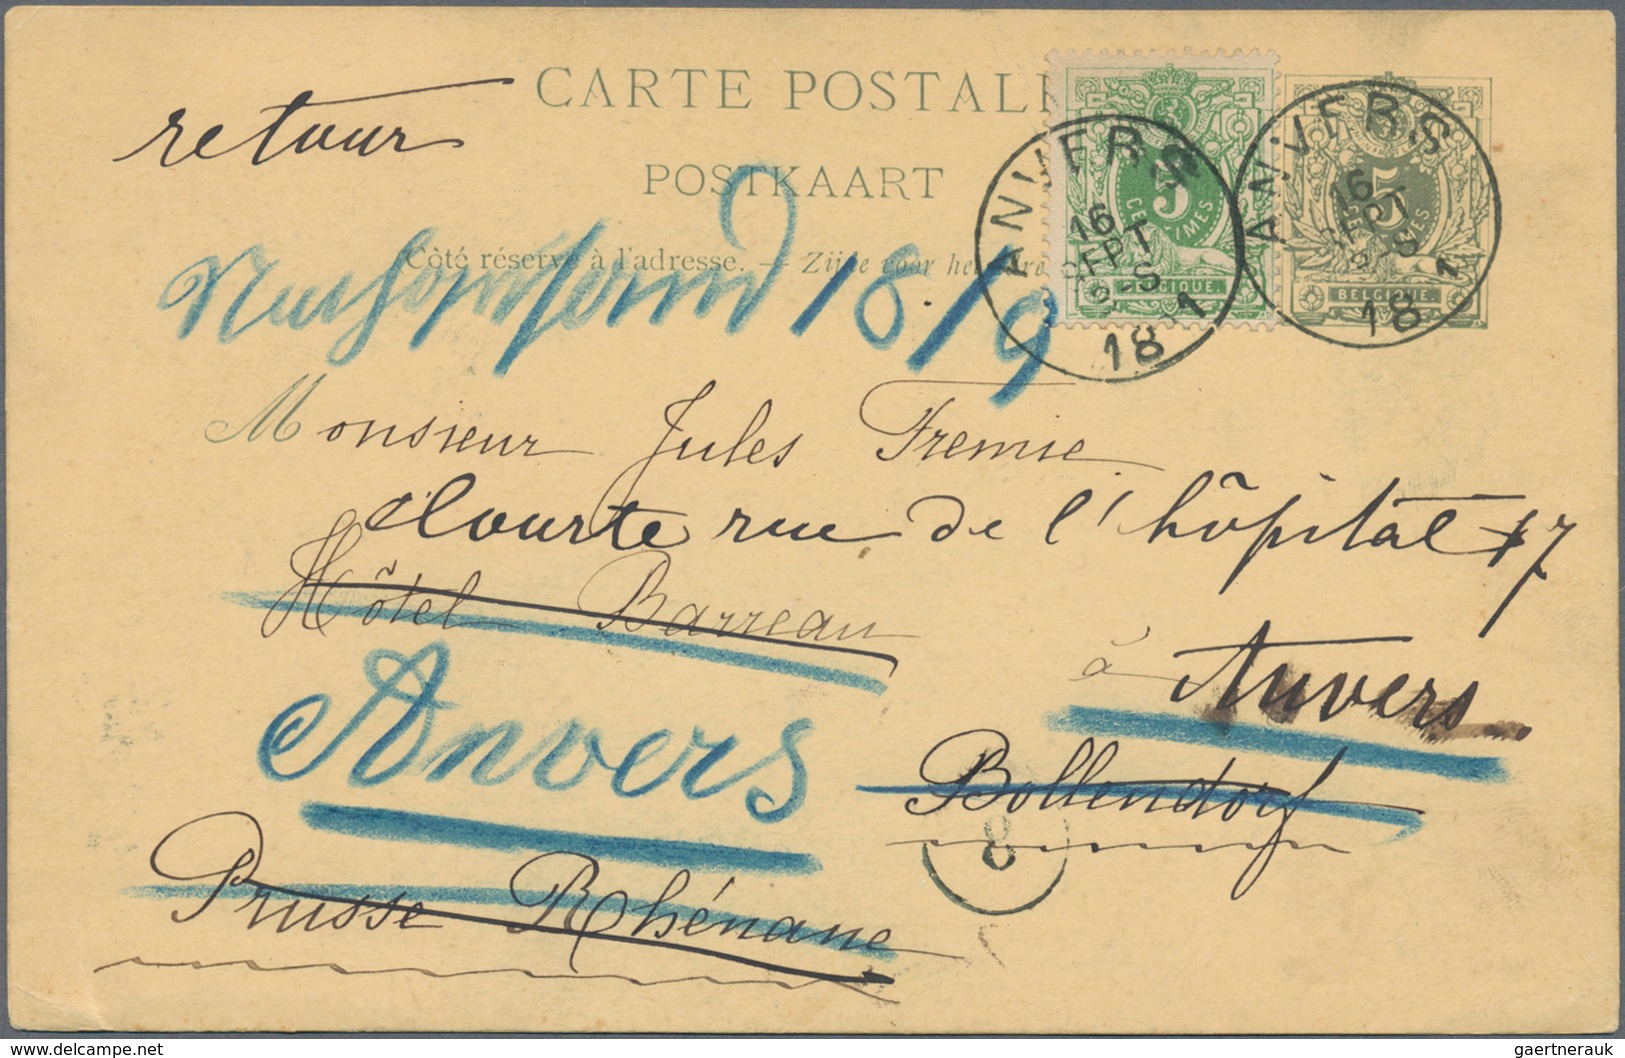 CARTE POSTALE
retour
POSTKAART
Côté réservé à l'adresse. — Zijde voor het adres
18/9
5
CENTIMES
BELGIQUE
5
CENTIMES
BELGIQUE
ANVERS
16
SEPT
8-S
18 1
ANVERS
16
SEPT
8-S
18 1
Monsieur Jules Fremie
Courte rue de l'hôpital 17
Hôtel Barreau
à Anvers
Anvers
Bollendorf
8
Prusse Rhénane
delcampe.net
gaertnerauk